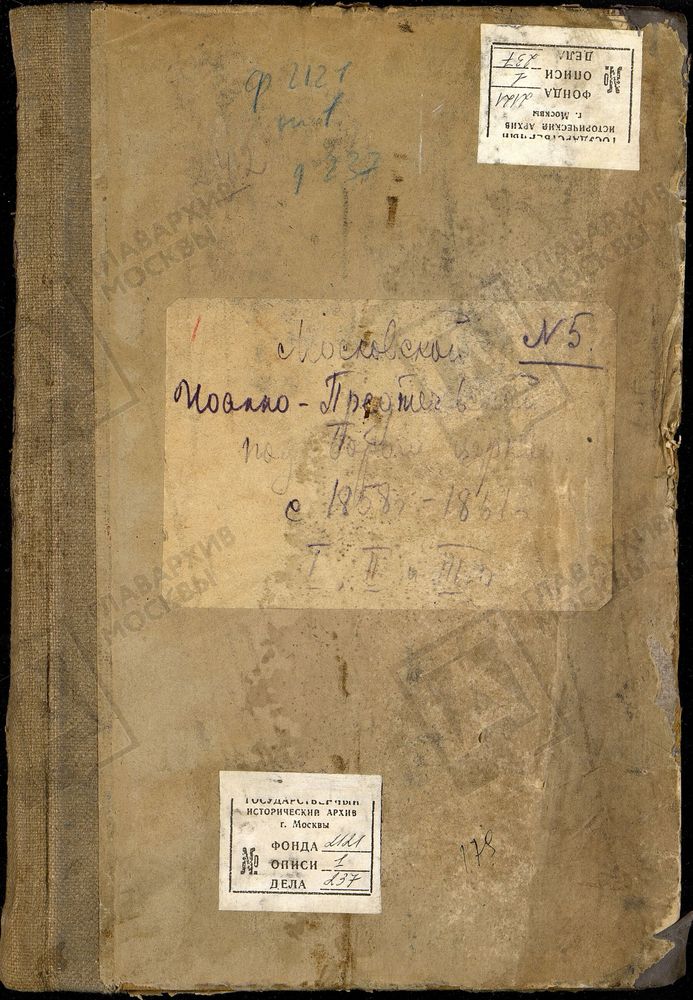 ф 2121
оп 1
д 237
ГОСУДАРСТВЕННЫЙ
ИСТОРИЧЕСКИЙ АРХИВ
г. Москвы
ФОНДА 2121
№ ОПИСИ 1
ДЕЛА 237
Московской № 5.
Иоанно-Предтечевской
под Бором церкви
с 1858 г - 1861 г
I, II и III ч
ГОСУДАРСТВЕННЫЙ
ИСТОРИЧЕСКИЙ АРХИВ
г. Москвы
ФОНДА 2121
№ ОПИСИ 1
ДЕЛА 237
179
ГЛАВАРХИВ
МОСКВЫ
ГЛАВАРХИВ
МОСКВЫ
ГЛАВАРХИВ
МОСКВЫ
ГЛАВАРХИВ
МОСКВЫ